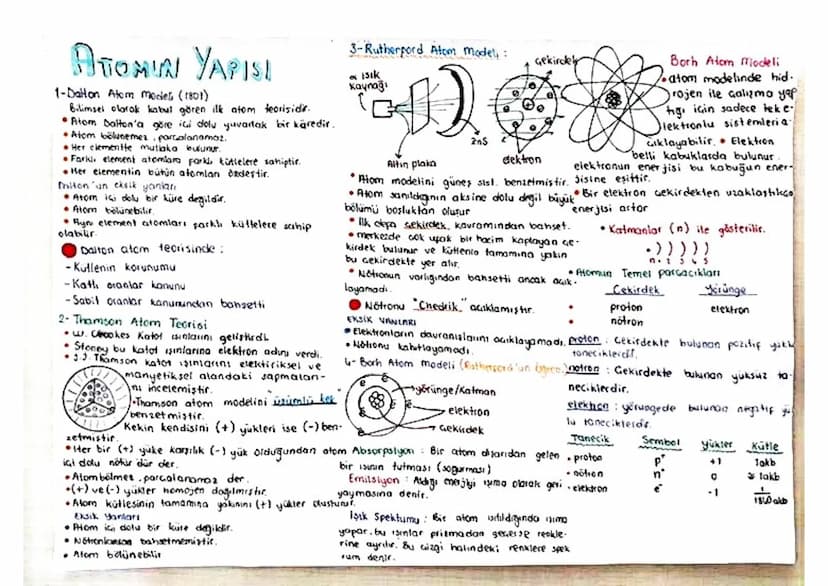 ATOMUN YAPISI
1-Dalton Atom Modeli (1801)
Bilimsel olarak kabul gören ilk atom teorisidir.
• Atom Dalton'a göre içi dolu yuvarlak bir küredir.
• Atom bölünemez, parçalanamaz.
• Her elementte mutlaka bulunur.
• Farklı element atomları farklı kütlelere sahiptir.
• Her elementin bütün atomları özdeştir.
Dalton'un eksik yanları
• Atom içi dolu bir küre değildir.
• Atom bölünebilir.
• Aynı element atomları farklı kütlelere sahip
olabilir
Dalton atom teorisinde :
- Kütlenin korunumu
- Katlı oranlar kanunu
- Sabit oranlar kanunundan bahsetti
2- Thamson Atom Teorisi
• W. Crookes Katot ışınlarını geliştirdi.
• Stoney bu katot ışınlarına elektron adını verdi.
• J.J. Thamson katot ışınlarını elektiriksel ve
manyetiksel alandaki sapmaları-
nı incelemiştir.
• Thamson atom modelini "üzümlü kek"
benzetmiştir.
Kekin kendisini (+) yükleri ise (-) ben-
zetmiştir.
• Her bir (+) yüke karşılık (-) yük olduğundan atom
içi dolu nötür dür der.
• Atom bölmez, parçalanamaz der.
• (+) ve (-) yükler homojen dağılmıştır.
• Atom kütlesinin tamamına yakınını (+) yükler oluşturur.
Eksik Yanları
• Atom içi dolu bir küre değildir.
• Nötronlardan bahsetmemiştir.
• Atom bölünebilir
3- Rutherford Atom Modeli :
α ışık
kaynağı
Altın plaka
ZnS
çekirdek
elektron
• Atom modelini güneş sist. benzetmiştir.
• Atom sanıldığının aksine dolu değil büyük
bölümü boşluktan oluşur
• İlk defa çekirdek kavramından bahset.
• merkezde çok ufak bir hacim kaplayan çe-
kirdek bulunur ve kütlenin tamamına yakın
bu çekirdekte yer alır.
• Nötronun varlığından bahsetti ancak açık-
layamadı.
Nötronu "Chedrik" açıklamıştır.
EKSİK YANLARI
• Elektronların davranışlarını açıklayamadı.
• Nötronu kanıtlayamadı.
4- Borh Atom Modeli
yörünge/Katman
elektron
çekirdek
Absorpsiyon : Bir atom dışarıdan gelen
bir ışının tutması (soğurması)
Emilsiyon : Aldığı enerjiyi ışıma olarak geri
yaymasına denir.
Işık Spektumu : Bir atom ısıtıldığında ışıma
yapar, bu ışınlar prizmadan geçerse renkle-
rine ayrılır. Bu çizgi halindeki renklere spek
rum denir.
Borh Atom Modeli
• atom modelinde hid-
rojen ile çalışma yap
tığı için sadece tek e-
lektronlu sistemleri a-
çıklayabilir. • Elektron
belli kabuklarda bulunur.
elektronun enerjisi bu kabuğun ener-
jisine eşittir.
• Bir elektron çekirdekten uzaklaştıkça
enerjisi artar
• Katmanlar (n) ile gösterilir.
• ) ) ) ) )
n = 1 2 3 4 5
• Atomun Temel parçacıkları
Çekirdek Yörünge
• proton elektron
• nötron
proton : Çekirdekte bulunan pozitif yük
taneciklerdir.
nötron : Çekirdekte bulunan yüksüz ta-
neciklerdir.
elektron : yörüngede bulunan negatif yü
lü taneciklerdir.
Tanecik Sembol Yükler Kütle
• proton p⁺ +1 1akb
• nötron n° 0 ≅ 1akb
• elektron e⁻ -1 1/1840 akb